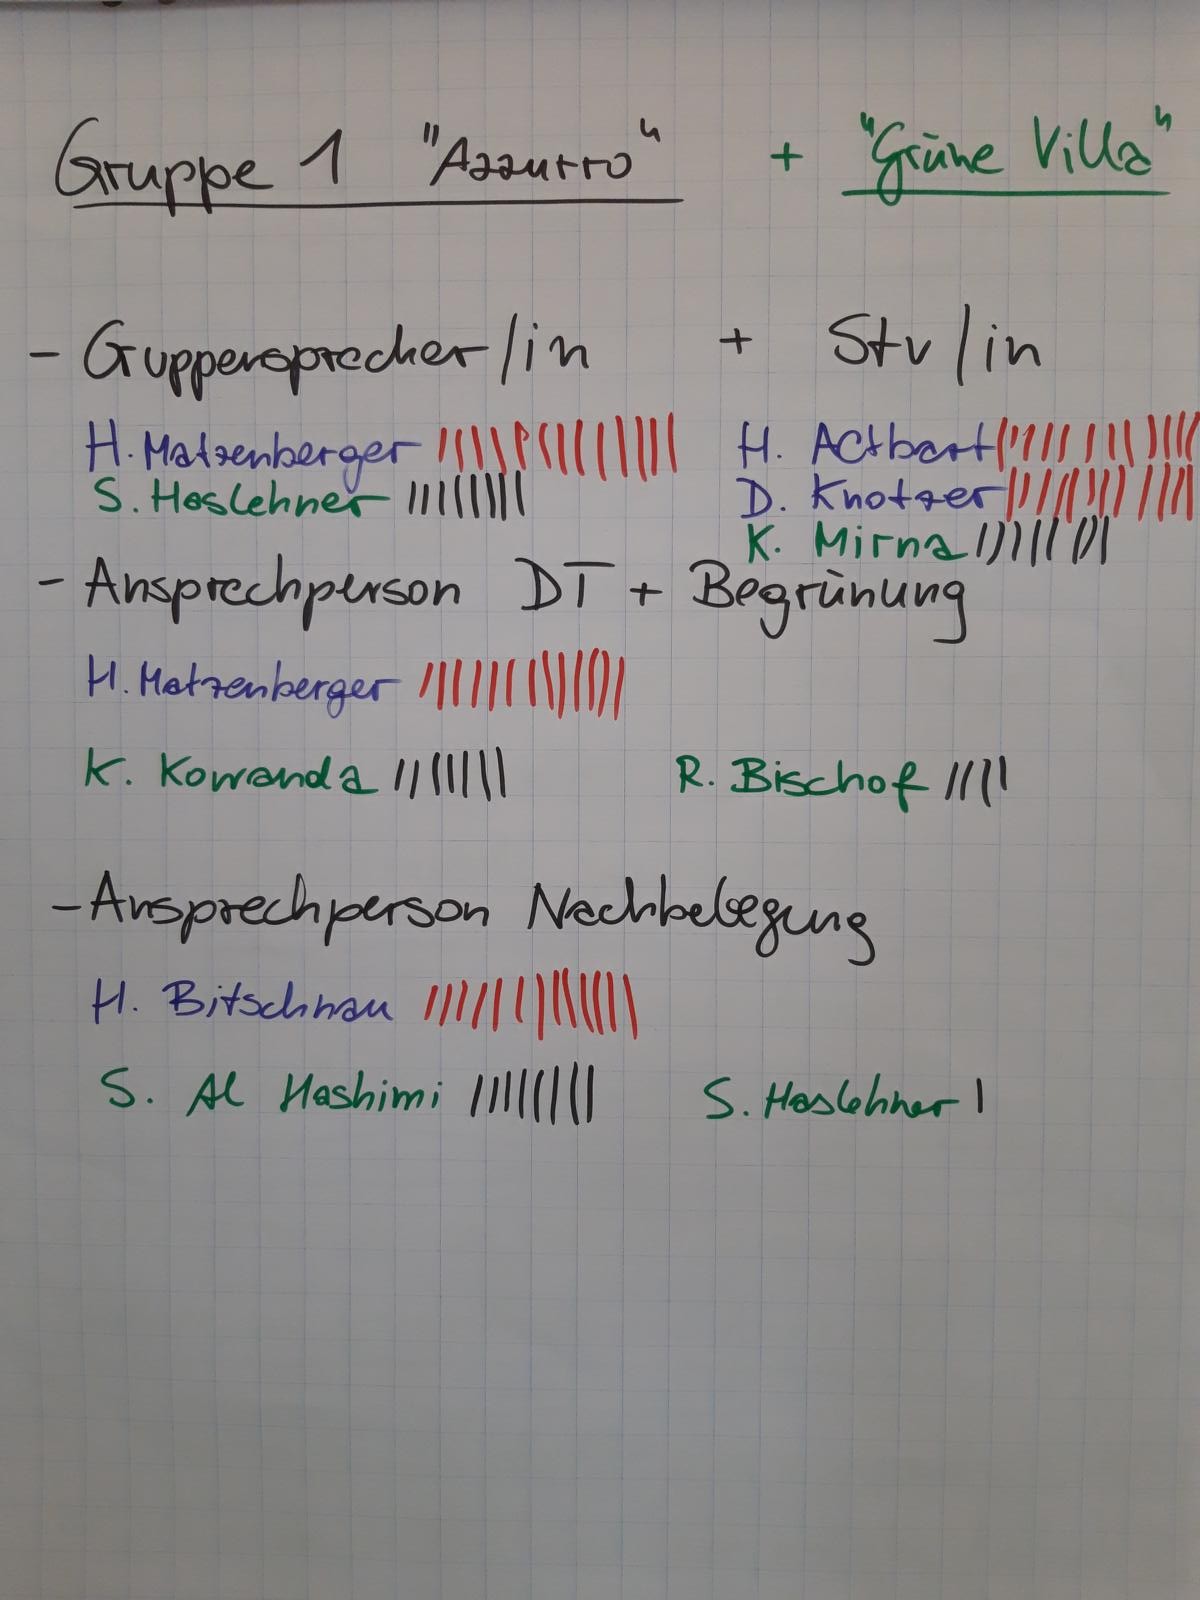 Gruppe 1 "Azzurro" + "Grüne Villa"
- Gruppensprecher/in + Stv/in
H. Matzenberger H. Actbart
S. Haslehner D. Knotzer
K. Mirna
- Ansprechperson DT + Begrünung
H. Matzenberger
K. Kowanda R. Bischof
- Ansprechperson Nachbelegung
H. Bitschnau
S. Al Hashimi S. Haslehner